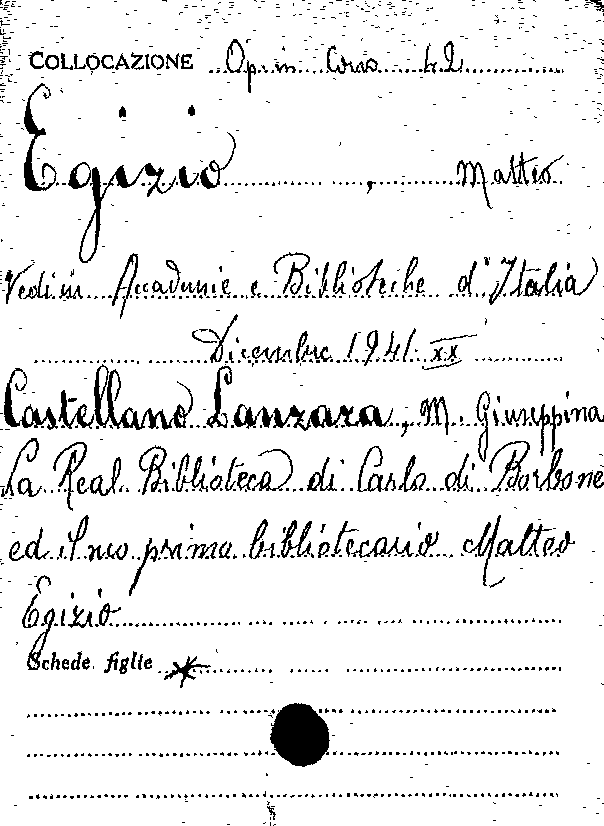 COLLOCAZIONE Op. in Corso 42
Egizio, Matteo
Vedi in Accademie e Biblioteche d'Italia
Dicembre 1941. XX
Castellano Lanzara, M. Giuseppina
La Real Biblioteca di Carlo di Borbone
ed il suo primo bibliotecario Matteo
Egizio
Schede figlie *